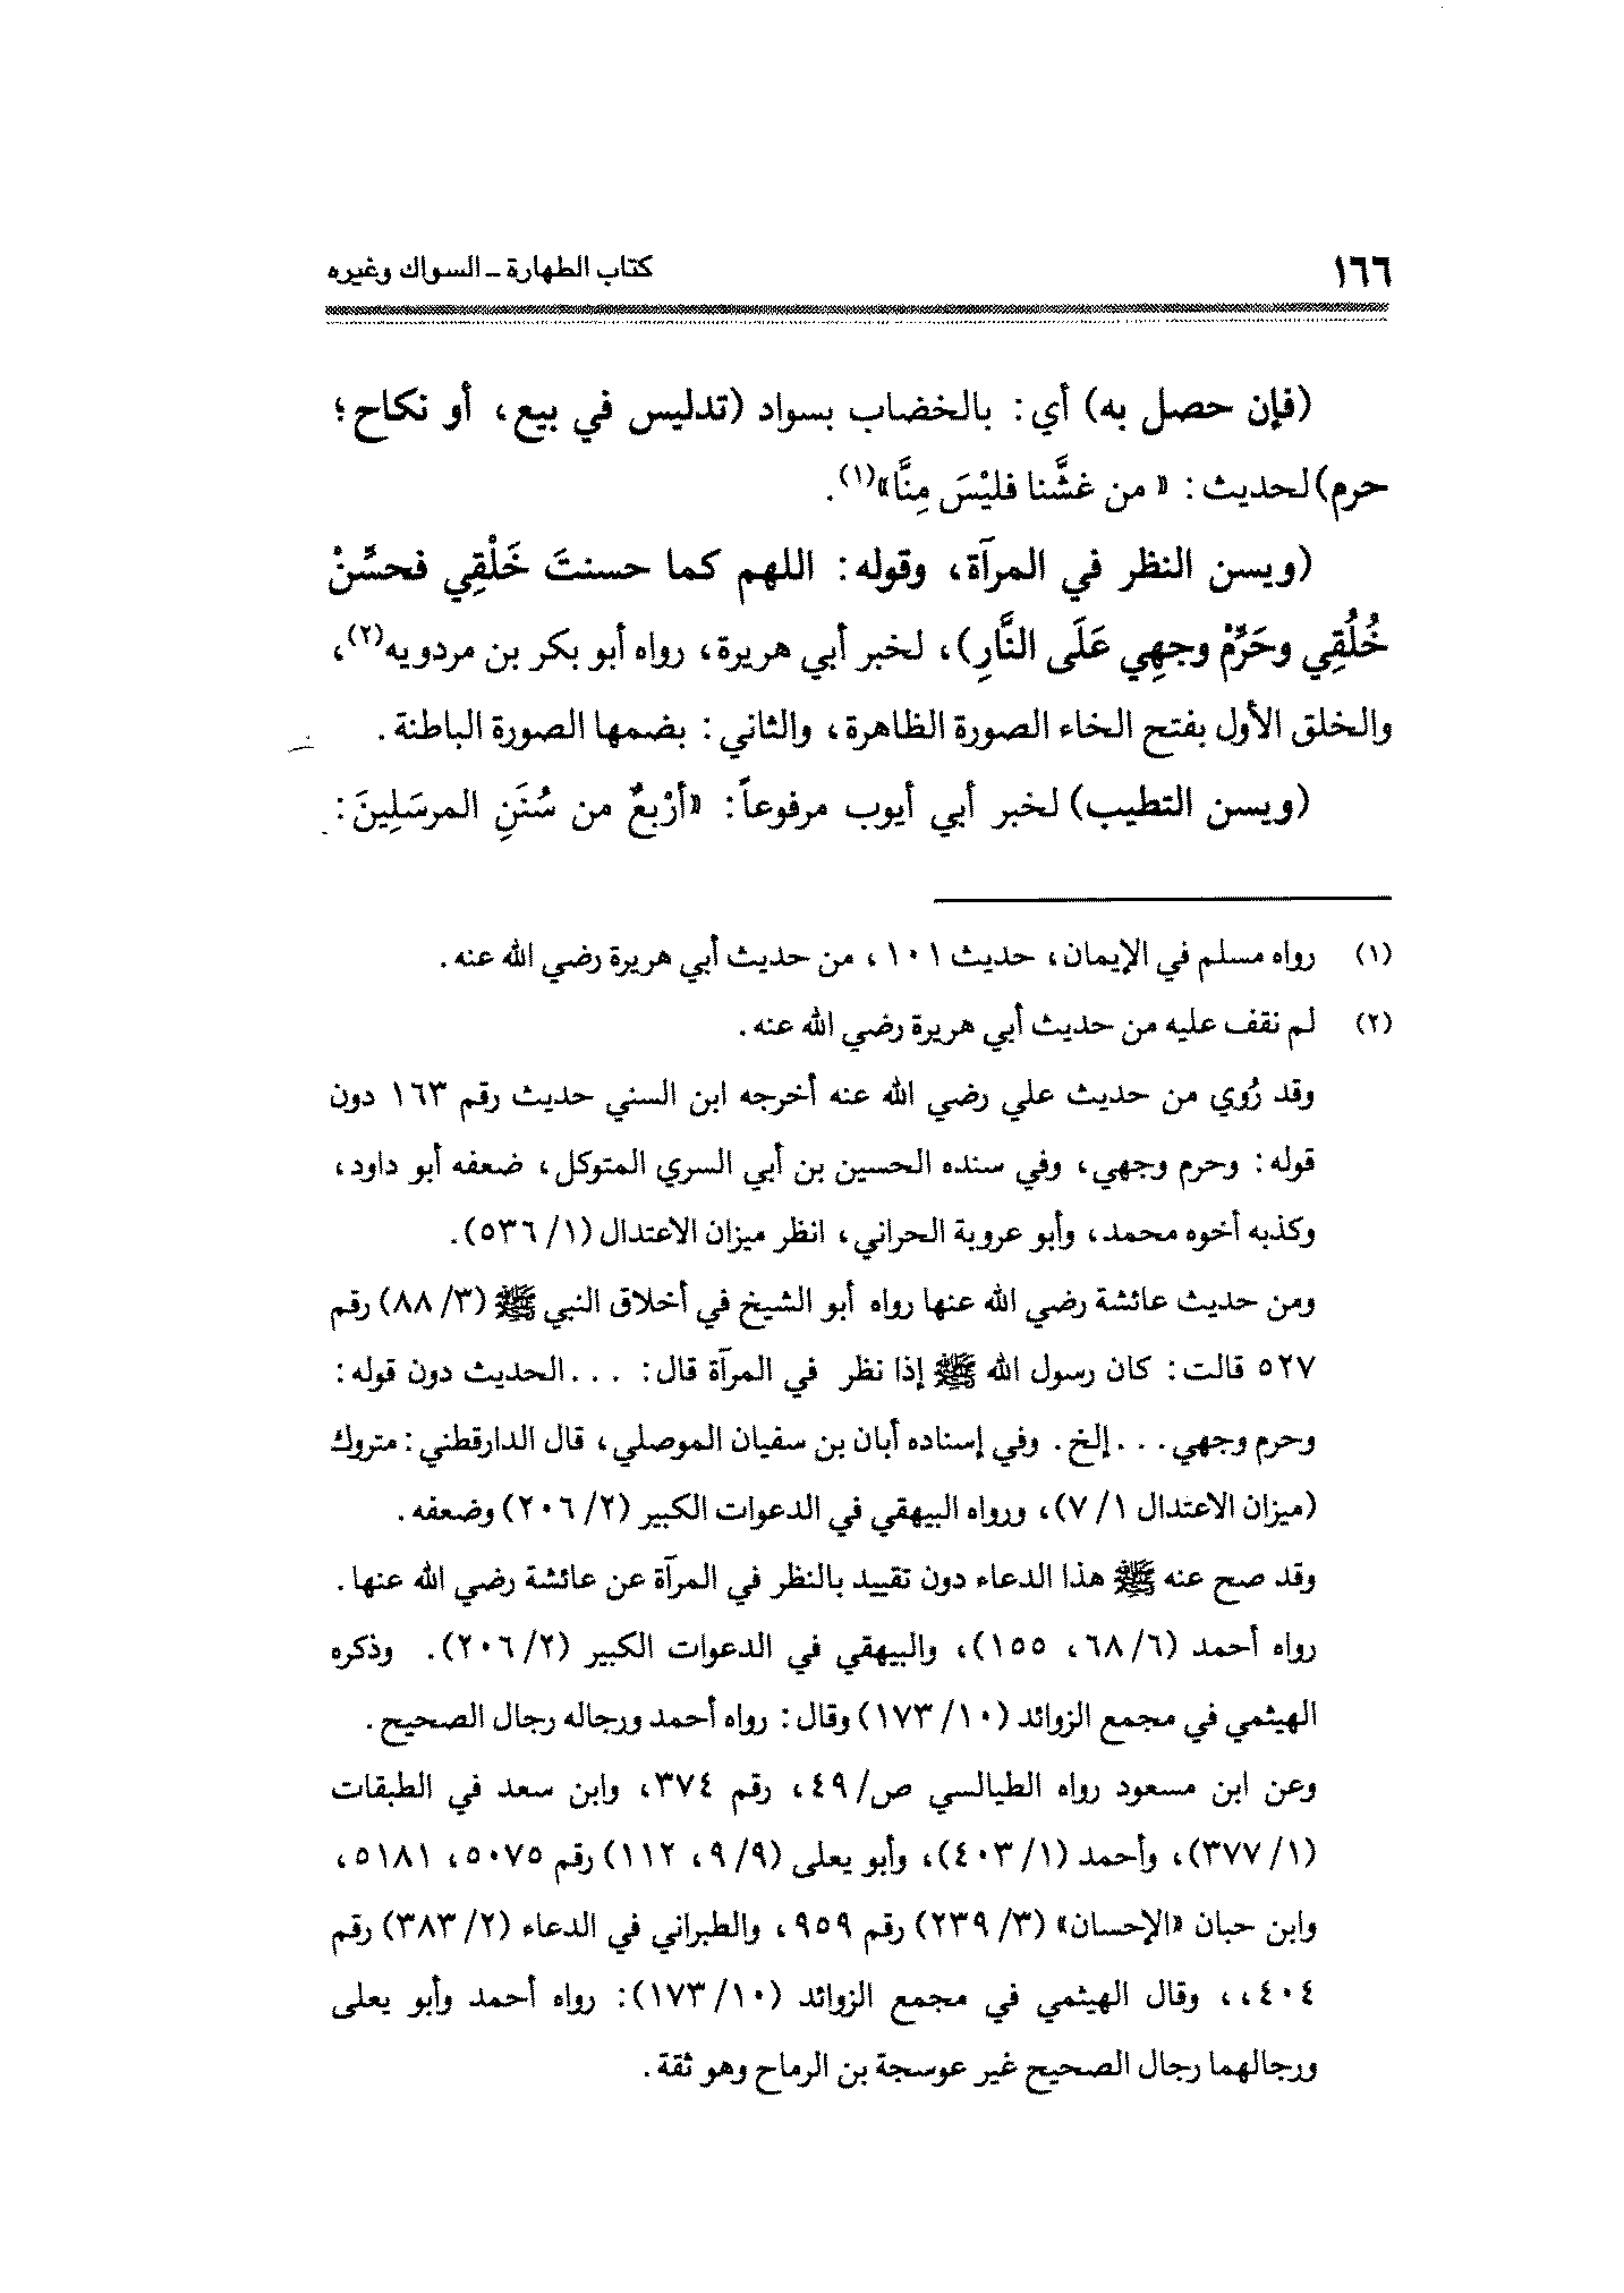 ١٦٦ كتاب الطهارة ـ السواك وغيره
(فإن حصل به) أي: بالخضاب بسواد (تدليس في بيع، أو نكاح؛
حرم) لحديث: «من غشَّنا فليْسَ مِنَّا»(١).
(ويسن النظر في المرآة، وقوله: اللهم كما حسنتَ خَلْقِي فحسِّنْ
خُلُقِي وحَرِّمْ وجهِي عَلَى النَّارِ)، لخبر أبي هريرة، رواه أبو بكر بن مردويه(٢)،
والخلق الأول بفتح الخاء الصورة الظاهرة، والثاني: بضمها الصورة الباطنة.
(ويسن التطيب) لخبر أبي أيوب مرفوعاً: «أرْبعٌ من سُنَنِ المرسَلِينَ:
(١) رواه مسلم في الإيمان، حديث ١٠١، من حديث أبي هريرة رضي الله عنه.
(٢) لم نقف عليه من حديث أبي هريرة رضي الله عنه.
وقد رُوي من حديث علي رضي الله عنه أخرجه ابن السني حديث رقم ١٦٣ دون
قوله: وحرم وجهي، وفي سنده الحسين بن أبي السري المتوكل، ضعفه أبو داود،
وكذبه أخوه محمد، وأبو عروبة الحراني، انظر ميزان الاعتدال (١/ ٥٣٦).
ومن حديث عائشة رضي الله عنها رواه أبو الشيخ في أخلاق النبي ﷺ (٣/ ٨٨) رقم
٥٢٧ قالت: كان رسول الله ﷺ إذا نظر في المرآة قال: ...الحديث دون قوله:
وحرم وجهي...إلخ. وفي إسناده أبان بن سفيان الموصلي، قال الدارقطني: متروك
(ميزان الاعتدال ١/ ٧)، ورواه البيهقي في الدعوات الكبير (٢/ ٢٠٦) وضعفه.
وقد صح عنه ﷺ هذا الدعاء دون تقييد بالنظر في المرآة عن عائشة رضي الله عنها.
رواه أحمد (٦/ ٦٨، ١٥٥)، والبيهقي في الدعوات الكبير (٢/ ٢٠٦). وذكره
الهيثمي في مجمع الزوائد (١٠/ ١٧٣) وقال: رواه أحمد ورجاله رجال الصحيح.
وعن ابن مسعود رواه الطيالسي ص/ ٤٩، رقم ٣٧٤، وابن سعد في الطبقات
(١/ ٣٧٧)، وأحمد (١/ ٤٠٣)، وأبو يعلى (٩/ ٩، ١١٢) رقم ٥٠٧٥، ٥١٨١،
وابن حبان «الإحسان» (٣/ ٢٣٩) رقم ٩٥٩، والطبراني في الدعاء (٢/ ٣٨٣) رقم
٤٠٤،، وقال الهيثمي في مجمع الزوائد (١٠/ ١٧٣): رواه أحمد وأبو يعلى
ورجالهما رجال الصحيح غير عوسجة بن الرماح وهو ثقة.